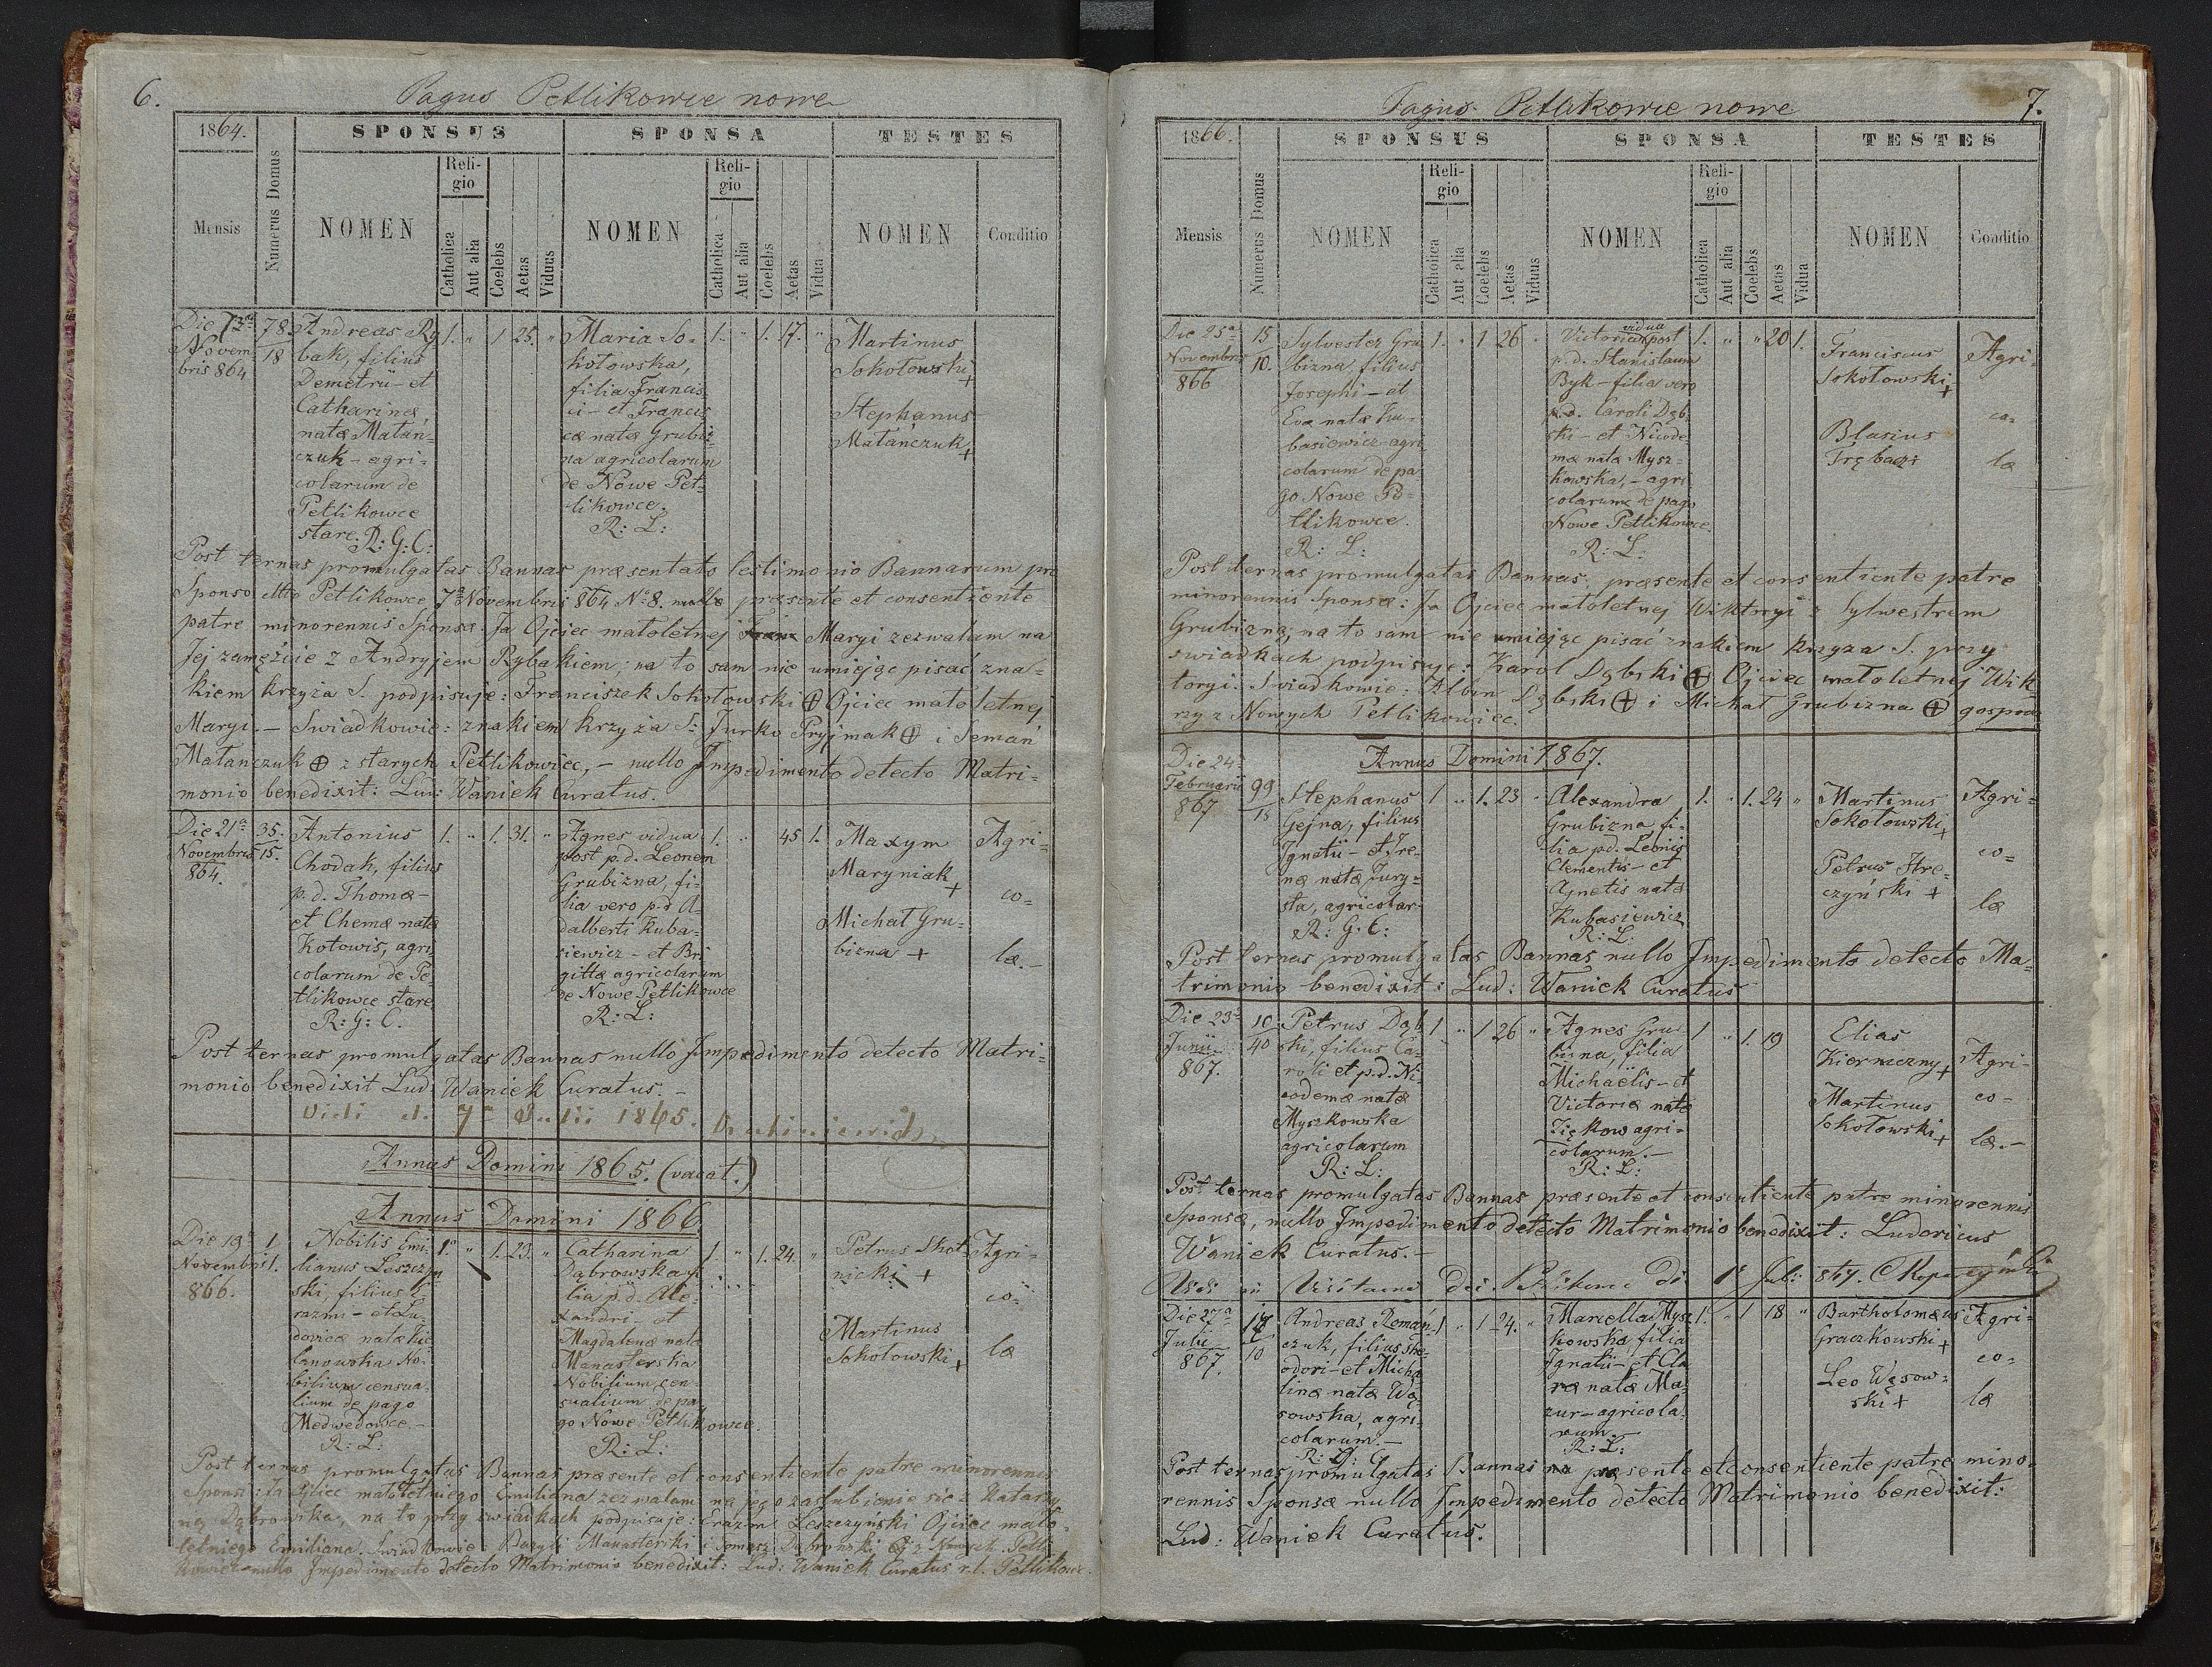 6.
Pagus Petlikowce nowe
1864.
SPONSUS
SPONSA
TESTES
Mensis
Numerus Domus
NOMEN
Religio
Catholica
Aut alia
Coelebs
Aetas
Viduus
NOMEN
Religio
Catholica
Aut alia
Coelebs
Aetas
Vidua
NOMEN
Conditio
Die 13a
Novem-
bris 864
78.
18
Andreas Ry
bak, filius
Demetrii - et
Catharinæ
natæ Matań-
czuk - agri-
colarum de
Petlikowce
stare. R: G: C:
1. " 1 25. "
Maria So-
kołowska,
filia Francis
ci - et Francis
cæ natæ Grubi-
zna agricolarum
de Nowe Pet-
likowce.
R: L:
1. " 1. 17. "
Martinus
Sokołowski
+
Stephanus
Matańczuk
+
Post ternas promulgatas Bannas præsentato testimonio Bannarum pro
Sponso dtto Petlikowce 7a Novembris 864 No 8. præsente et consentiente
patre minorennis Sponsæ: Ja Ojciec małoletnej Maryi zezwalam na
Jej zamęście z Andryjem Rybakiem; na to sam nie umiejąc pisać zna-
kiem krzyża S. podpisuje: Franciszek Sokołowski + Ojciec małoletnej
Maryi. - Swiadkowie: znakiem krzyża S: Jurko Pryjmak + i Semań
Matańczuk + z starych Petlikowiec, - nullo Impedimento detecto Matri-
monio benedixit: Lud: Waniek Curatus.
Die 21a
Novembris
864.
35.
15.
Antonius
Chodak, filius
p.d. Thomæ -
et Chemæ natæ
Kotowis, agri
colarum de Pe
tlikowce stare
R: G: C.
1. " 1. 31. "
Agnes vidua
post p.d. Leonem
Grubizna, fi-
lia vero p.d A-
dalberti Kuba-
siewicz - et Bri
gittæ agricolarum
de Nowe Petlikowce
R: L:
1. " 45 1.
Maxym
Maryniak
+
Michał Gru-
bizna +
Agri-
co-
læ. -
Post ternas promulgatas Bannas nullo Impedimento detecto Matri-
monio benedixit Lud: Waniek Curatus. -
Vidi d. 7a Julii 1865.
Annus Domini 1865. (vacat.)
Annus Domini 1866.
Die 19a
Novembris
866.
1.
1.
Nobilis Emi-
lianus Leszczyn
ski, filius E-
razmi - et Lu-
dovicæ natæ Kie
lanowska No-
bilium censua-
lium de pago
Medwedowce. -
R: L:
1. " 1. 23. "
Catharina
Dąbrowska fi-
lia p.d. Ale-
xandri - et
Magdalenæ natæ
Manasterska
Nobilium cen-
sualium de pa-
go Nowe Petlikowce.
R: L:
1. " 1. 24. "
Petrus Skot-
nicki +
Martinus
Sokołowski
+
Agri-
co-
læ
Post ternas promulgatas Bannas præsente et consentiente patre minorennis
Sponsi: Ja Ojciec małoletniego Emiliana zezwalam na jego zaslubienie sie z Katarzy
ną Dąbrowską, na to przy swiadkach podpisuje: Erazm Leszczyński Ojciec mało-
letniego Emiliana. Swiadkowie Bazyli Manasterski i Tomasz Dąbrowski + z Nowych Petli
kowiec - nullo Impedimento detecto Matrimonio benedixit: Lud: Waniek Curatus r.l. Petlikowc.
7.
Pagus Petlikowce nowe
1866.
SPONSUS
SPONSA
TESTES
Mensis
Numerus Domus
NOMEN
Religio
Catholica
Aut alia
Coelebs
Aetas
Viduus
NOMEN
Religio
Catholica
Aut alia
Coelebs
Aetas
Vidua
NOMEN
Conditio
Die 25a
Novembris
866
15
10.
Sylvester Gru
bizna, filius
Josephi - et
Evæ natæ Ku-
basiewicz - agri
colarum de pa
go Nowe Pe-
tlikowce.
R: L:
1. " 1 26 "
vidua
Victoria post
p.d. Stanislaum
Byk - filia vero
p.d. Caroli Dąb
ski - et Nicode
mæ natæ Mysz-
kowska, - agri
colarum de pago
Nowe Petlikowce.
R: L:
1. " " 20 1.
Franciscus
Sokołowski
+
Blasius
Trębacz +
Agri-
co-
læ
Post ternas promulgatas Bannas, præsente et consentiente patre
minorennis Sponsæ: Ja Ojciec małoletnej Wiktoryi z Sylwestrem
Grubizną; na to sam nie umiejąc pisać znakiem krzyża S. przy
swiadkach podpisuje: Karol Dąbski + Ojciec małoletnej Wik-
toryi. Swiadkowie: Albin Dąbski + i Michał Grubizna + gospoda
rzy z Nowych Petlikowiec.
Annus Domini 1867.
Die 24a
Februarii
867
99
15
Stephanus
Gejna, filius
Ignatii - et Ire-
næ natæ Jury-
sta, agricolar-
R: G: C:
1 " 1. 23 "
Alexandra
Grubizna fi-
lia p.d. Leonis
Clementis - et
Agnetis natæ
Kubasiewicz
R: L:
1. " 1. 24 "
Martinus
Sokołowski
+
Petrus Stre-
czyński +
Agri-
co-
læ
Post ternas promulgatas Bannas nullo Impedimento detecto Ma-
trimonio benedixit: Lud: Waniek Curatus
Die 23a
Junii
867.
10
40
Petrus Dąb
ski, filius Ca-
roli et p.d. Ni-
codemæ natæ
Myszkowska
agricolarum
R: L:
1 " 1 26 "
Agnes Gru
bizna, filia
Michaëlis - et
Victoriæ natæ
Ziękow agri-
colarum. -
R: L:
1 " 1. 19
Elias
Kierniczny
+
Martinus
Sokołowski
+
Agri-
co-
læ. -
Post ternas promulgatas Bannas præsente et consentiente patre minorennis
Sponsæ, nullo Impedimento detecto Matrimonio benedixit: Ludovicus
Waniek Curatus. -
Die 27a
Julii
867.
17
10
Andreas Romań-
czuk, filius The-
odori - et Micha-
linæ natæ Wą-
sowska, agri-
colarum. -
R: G: C
1 " 1 24. "
Marcella Mysz
kowska filia
Ignatii - et Cla
ræ natæ Ma-
zur - agricola-
rum. -
R: L:
1. " 1 18 "
Bartholomæus
Graczkowski
+
Leo Wąsow-
ski +
Agri-
co-
læ
Post ternas promulgatas Bannas præsente et consentiente patre mino-
rennis Sponsæ nullo Impedimento detecto Matrimonio benedixit:
Lud: Waniek Curatus.